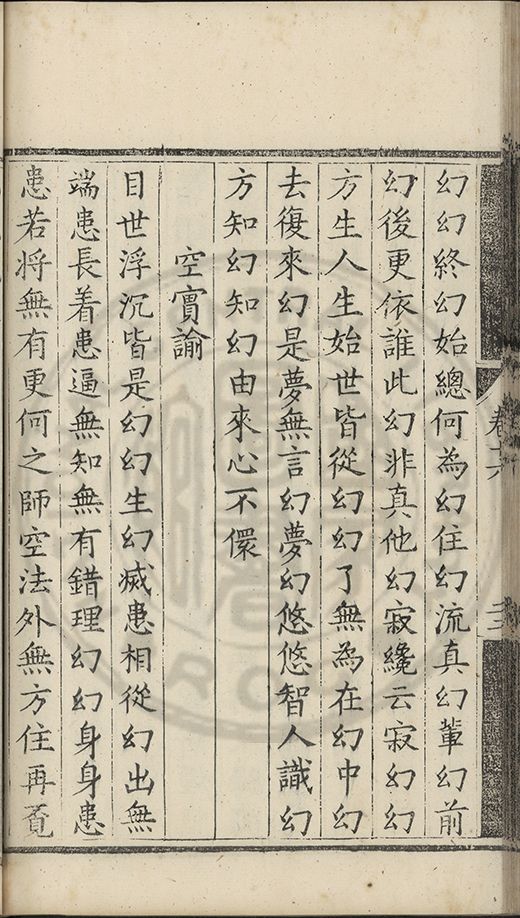 幻幻終幻始總何為幻住幻流真幻輩幻前
幻後更依誰此幻非真他幻寂纔云寂幻幻
方生人生始世皆從幻幻了無為在幻中幻
去復來幻是夢無言幻夢幻悠悠智人識幻
方知幻知幻由來心不儇
空實諭
目世浮沉皆是幻幻生幻滅患相從幻出無
端患長着患逼無知無有錯理幻幻身身患
患若將無有更何之師空法外無方住再覔
卷六